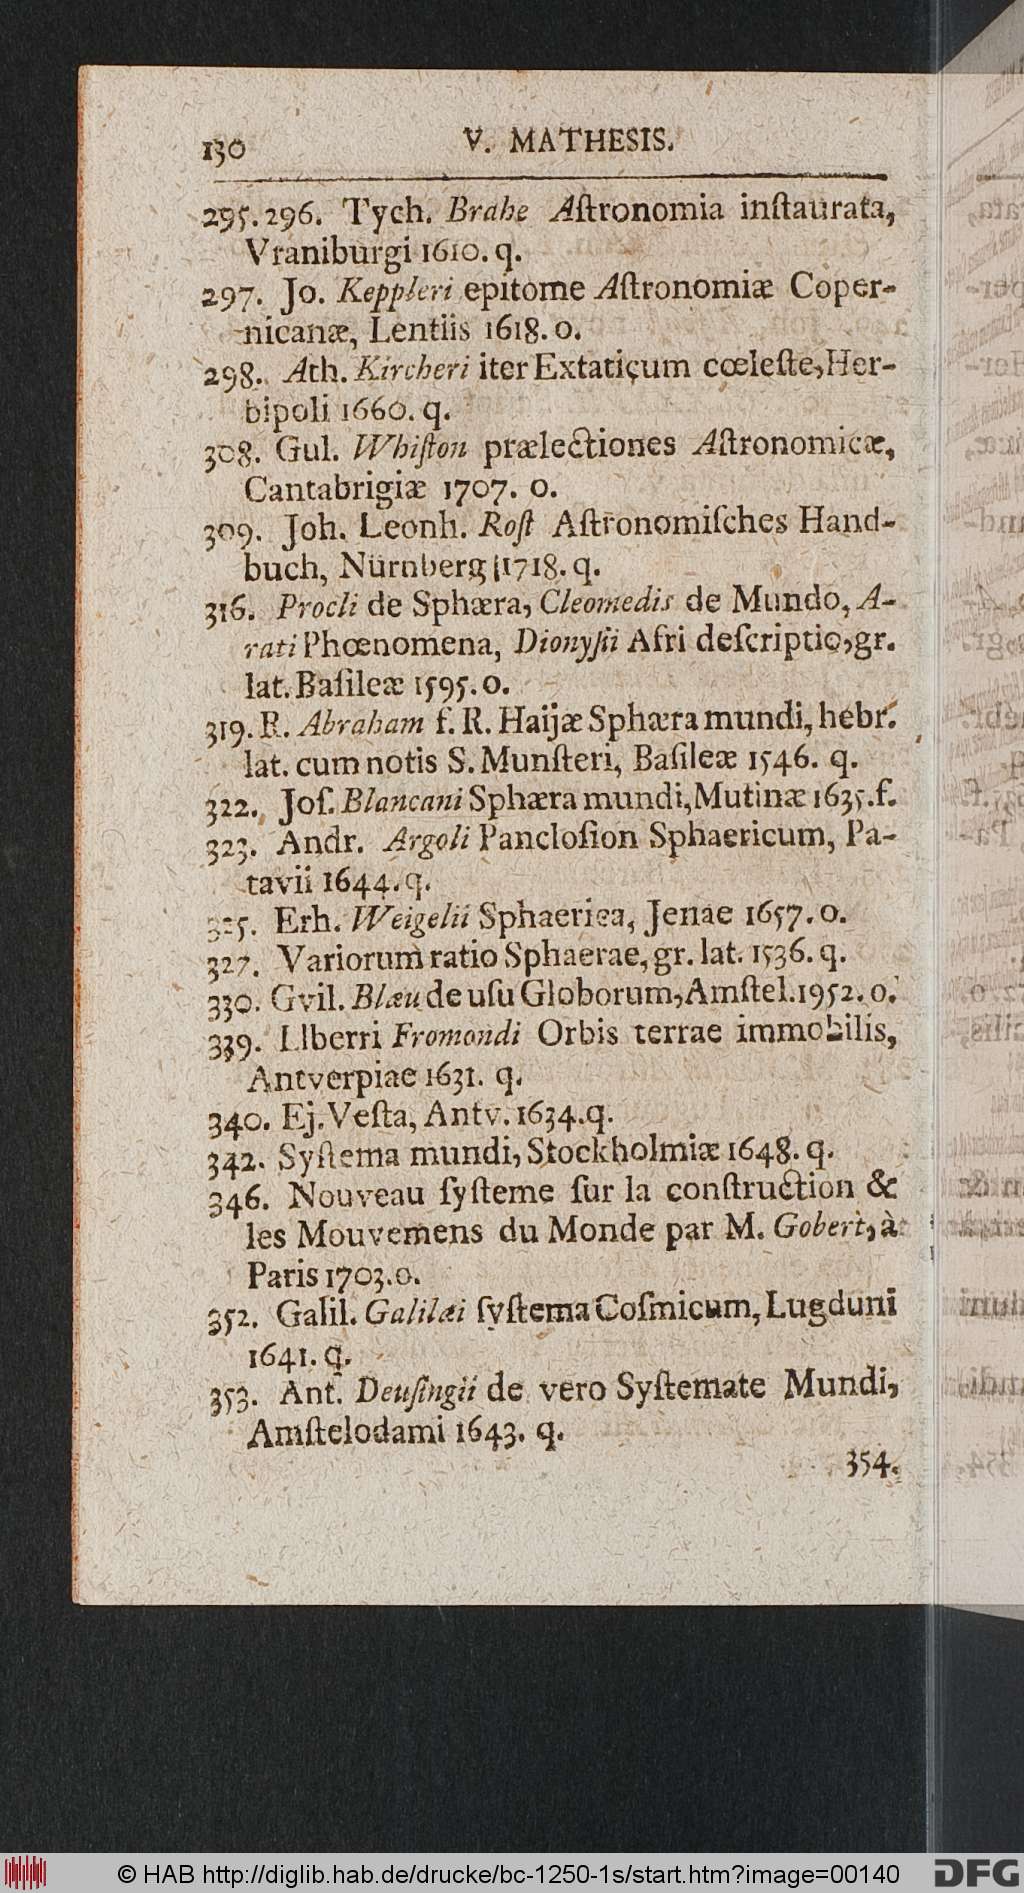 130 V. MATHESIS.
295.296. Tych. Brahe Aſtronomia inſtaurata,
Vraniburgi 1610. q.
297. Jo. Keppleri epitome Aſtronomiæ Coper-
nicanæ, Lentiis 1618. o.
298. Ath. Kircheri iter Extaticum cœleſte, Her-
bipoli 1660. q.
308. Gul. Whiſton prælectiones Aſtronomicæ,
Cantabrigiæ 1707. o.
309. Joh. Leonh. Roſt Aſtronomiſches Hand-
buch, Nürnberg 1718. q.
316. Procli de Sphæra, Cleomedis de Mundo, A-
rati Phœnomena, Dionyſii Afri deſcriptio, gr.
lat. Baſileæ 1595. o.
319. R. Abraham f. R. Haijæ Sphæra mundi, hebr.
lat. cum notis S. Munſteri, Baſileæ 1546. q.
322. Joſ. Blancani Sphæra mundi, Mutinæ 1635. f.
323. Andr. Argoli Pancloſion Sphaericum, Pa-
tavii 1644. q.
325. Erh. Weigelii Sphaerica, Jenae 1657. o.
327. Variorum ratio Sphaerae, gr. lat. 1536. q.
330. Gvil. Blæu de uſu Globorum, Amſtel. 1952. o.
339. LIberri Fromondi Orbis terrae immobilis,
Antverpiae 1631. q.
340. Ej. Veſta, Antv. 1634. q.
342. Syſtema mundi, Stockholmiæ 1648. q.
346. Nouveau ſyſteme ſur la conſtruction &
les Mouvemens du Monde par M. Gobert, à
Paris 1703. o.
352. Galil. Galilæi ſyſtema Coſmicum, Lugduni
1641. q.
353. Ant. Deuſingii de vero Syſtemate Mundi,
Amſtelodami 1643. q.
354.
© HAB http://diglib.hab.de/drucke/bc-1250-1s/start.htm?image=00140 DFG